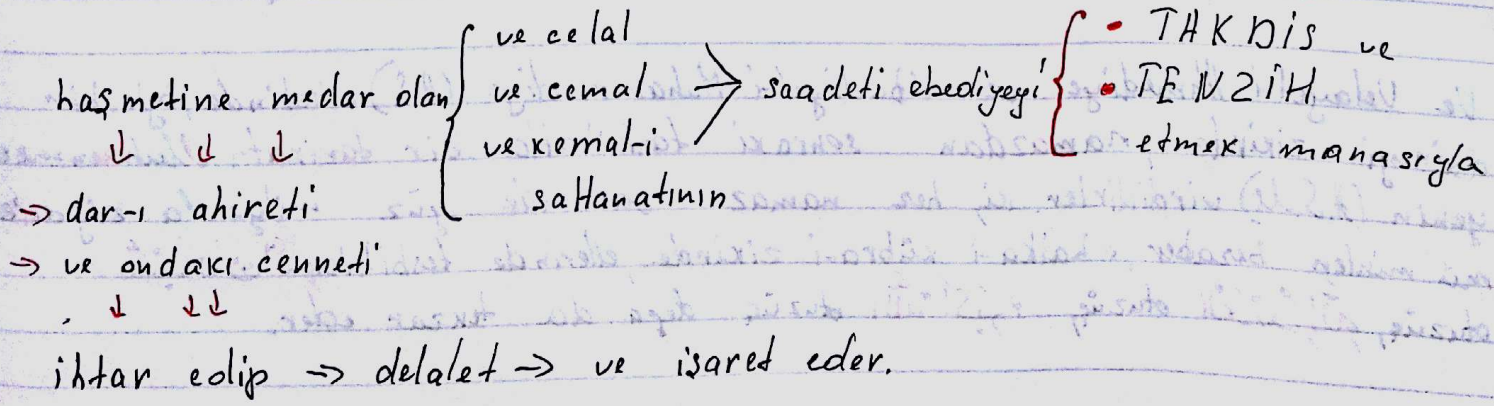 haşmetine medar olan { ve celal
ve cemal
ve kemal-i
saltanatının
→ saadeti ebediyeyi {
• TAKDİS ve
• TENZİH
etmek manasıyla
↓ ↓ ↓
→ dar-ı ahireti
→ ve ondakı cenneti
↓ ↓↓
ihtar edip → delalet → ve işaret eder.